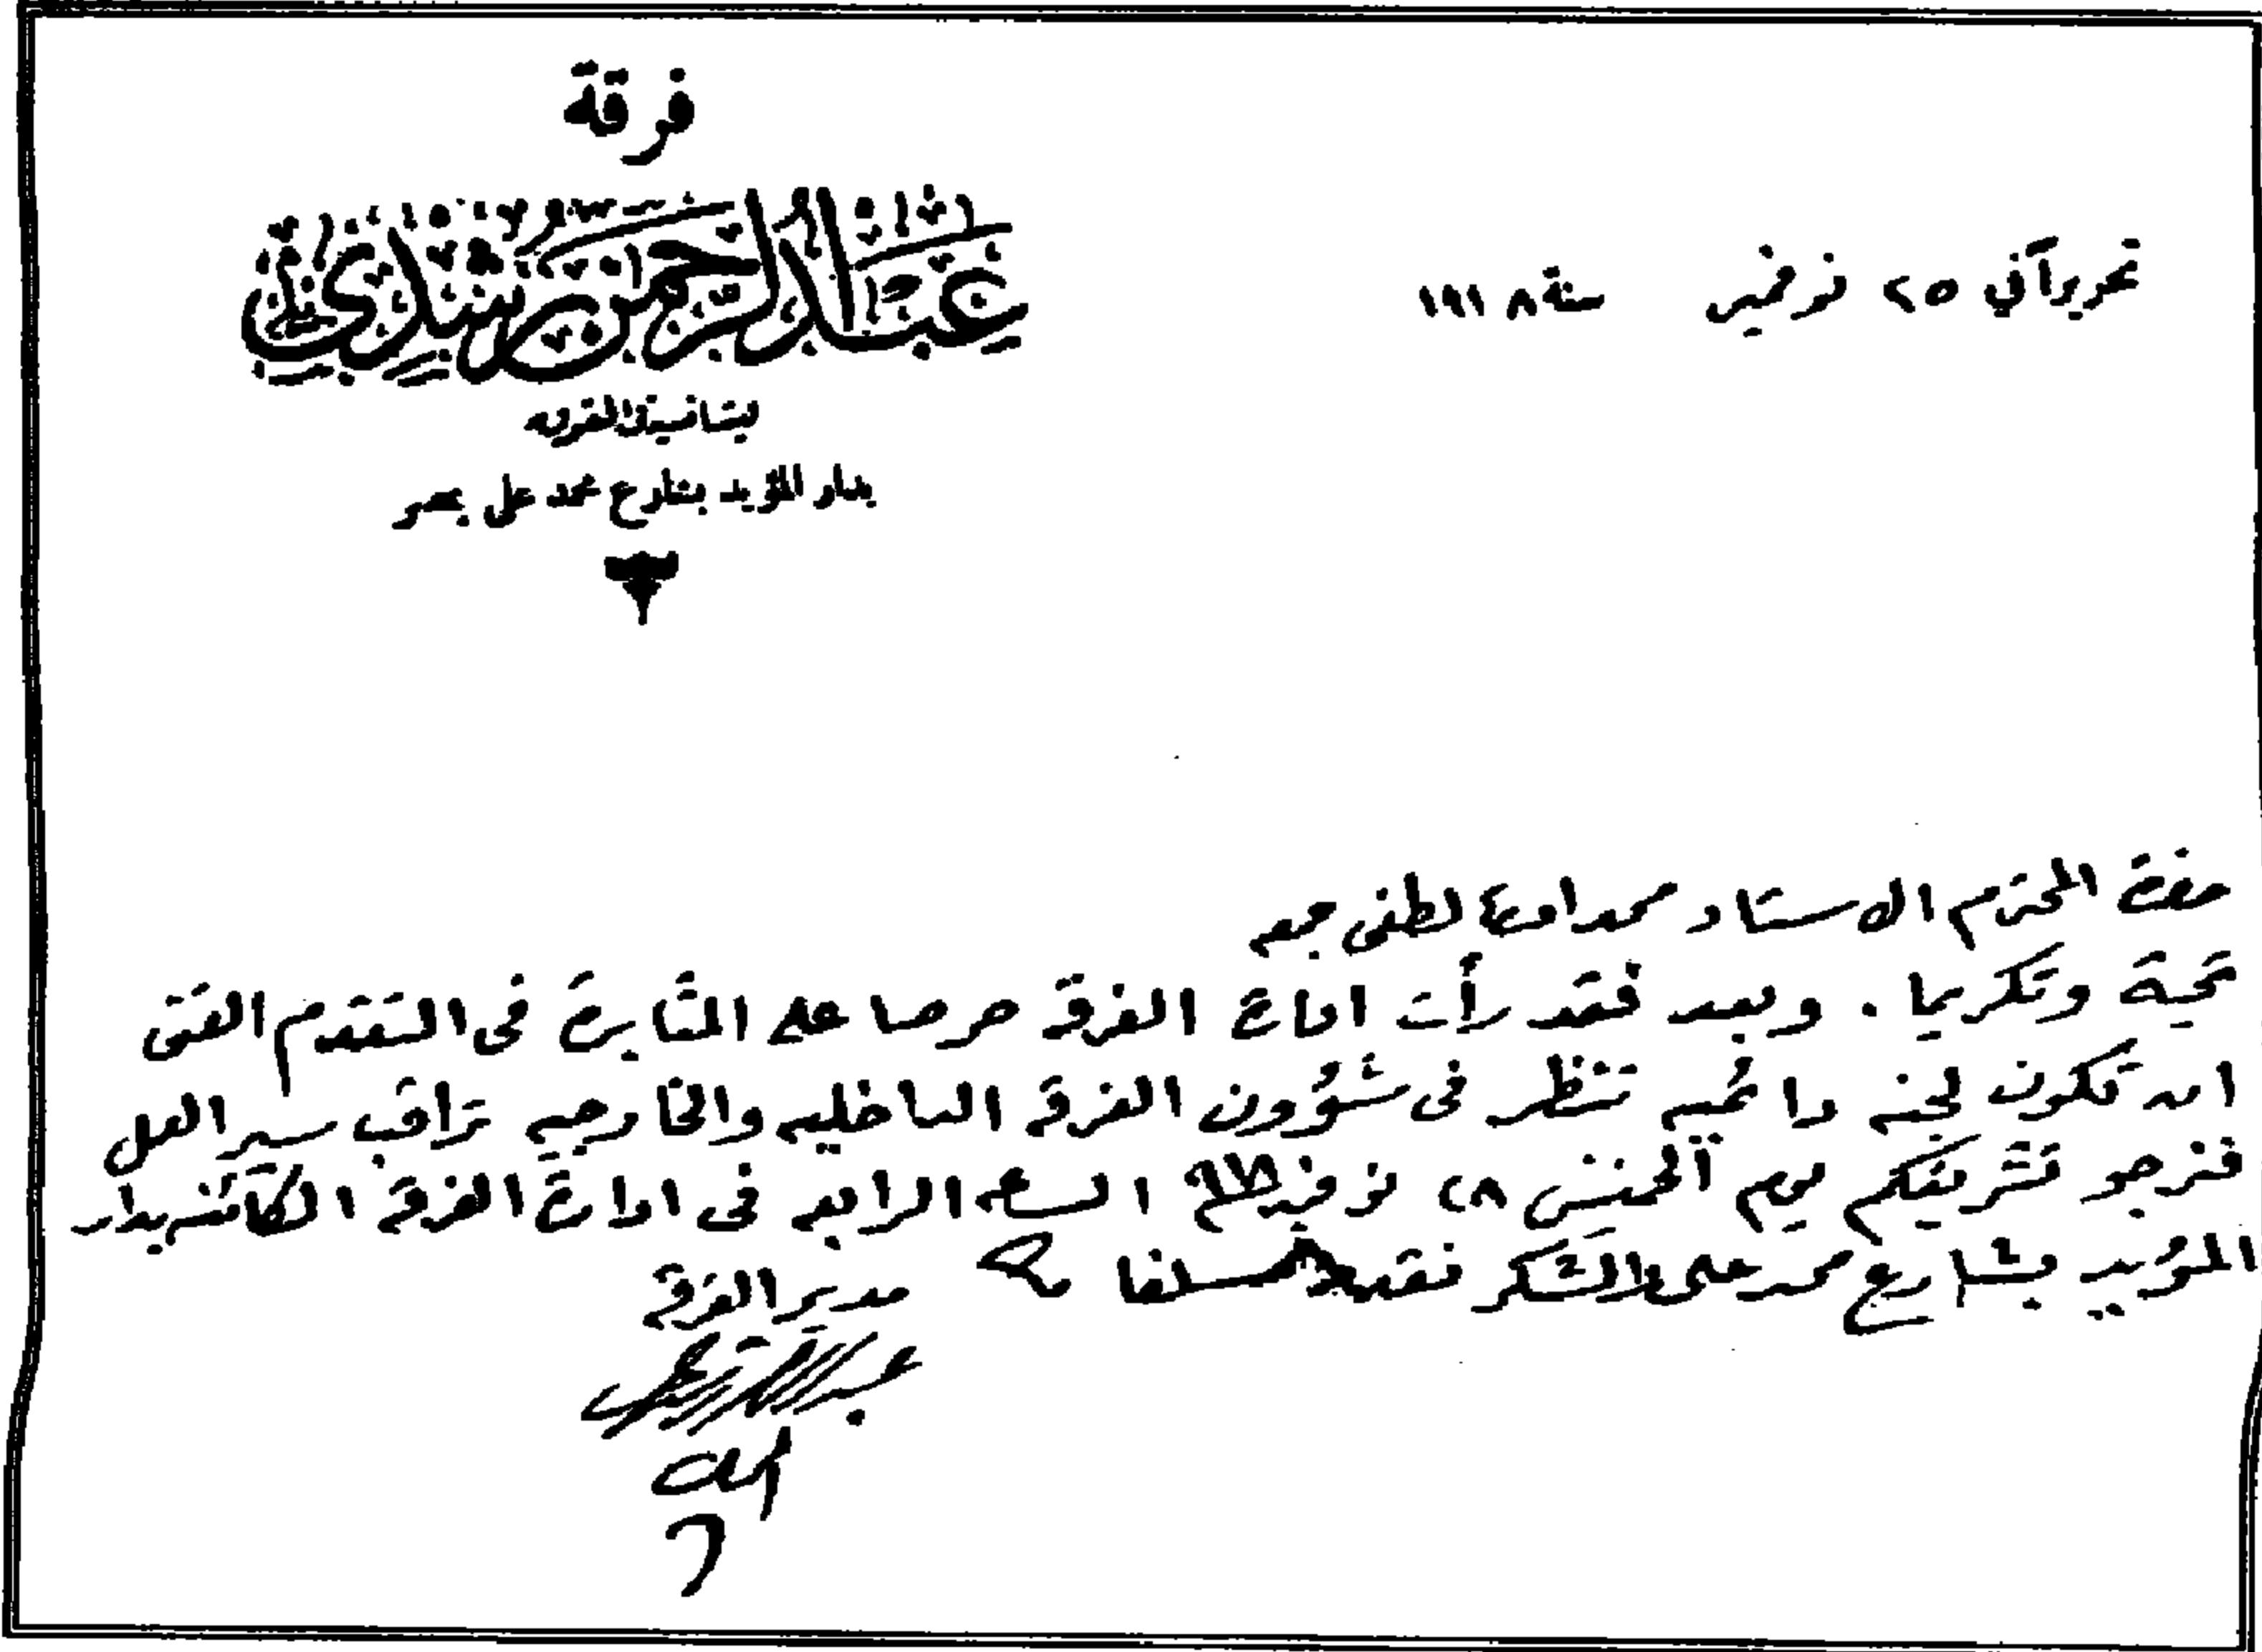 فرقة
عبد الرحمن رشدي
بتياترو
بدار المؤيد بشارع محمد علي بمصر
تحريرا في ٢٥ نوفمبر سنة ١٩١٨
حضرة المحترم الاستاذ محمد افندي لطفي جمعه
تحية وتكريما . وبعد فقد رأت ادارة الفرقة حرصا على المثابرة فى التقدم الفنى
ان تكون لجنه دائميه تنظر فى شؤون الفرقة الداخليه والخارجيه تراقب سير العمل
فنرجو تشريفكم يوم الخميس ٢٨ نوفمبر الساعه الرابعه فى ادارة الفرقة الكائنه بدار
المؤيد بشارع محمد على ولكم الشكر سلفا
مدير الفرقة
عبد الرحمن رشدي